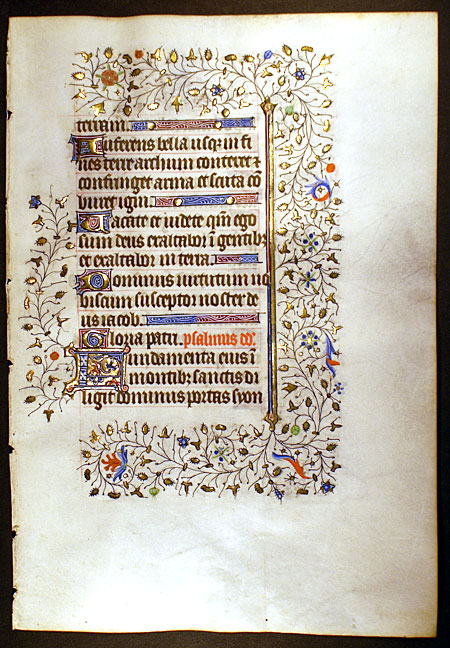 terram.
Auferens bella usq; in fi
nes terre archum conteret ⁊
confringet arma et scuta cō
buret igni.
Uacate et videte qm̄ ego
sum deus exaltabor ī gentibꝫ
et exaltabor in terra.
Dominus virtutum no
biscum susceptor noster de
us iacob.
Gloria patri. psalmus dd̄.
Fundamenta eius ī
montibꝫ sanctis di
ligit dominus portas syon